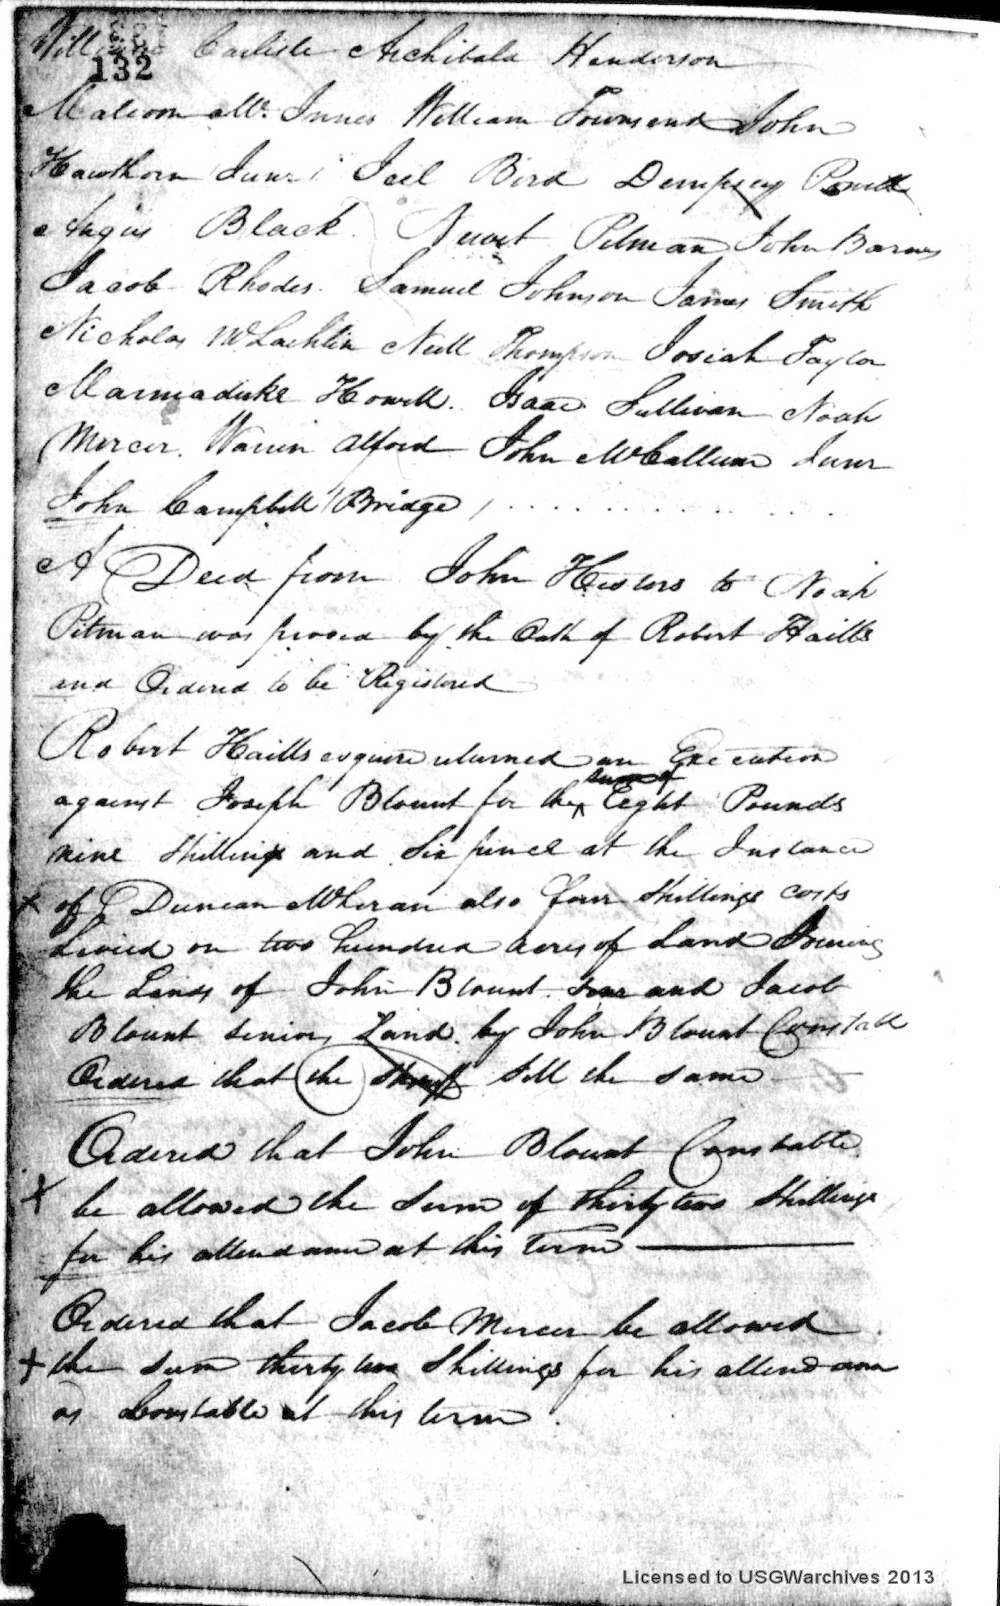 William Carlisle Archibald Henderson
132
Malcom Mc. Innes William Townsend John
Hawthorn Junr Joel Bird Dempsey Powell
Angus Black Newet Pitman John Barnes
Jacob Rhodes Samuel Johnson James Smith
Nicholas McLachlin Neill Thompson Josiah Taylor
Marmaduke Howell. Isaac Sullivan Noah
Mercer. Warrin Alford John McCallum Junr
John Campbell (Bridge)
A Deed from John Hesters to Noah
Pitman was proved by the Oath of Robert Haills
and Ordered to be Registered
Robert Haills esquire returned an Execution
sum of
against Joseph Blount for the ^ Eight Pounds
nine Shillings and Six pince at the Instance
x of Duncan McKeran also four Shillings costs
Levied on two hundred acres of Land Joining
the Lands of John Blount and Jacob
Blount senior Land. by John Blount Constable
Ordered that the Sheriff Sell the same
Ordered that John Blount Constable
x be allowed the Sum of thirty two Shillings
for his attendance at this Term
Ordered that Jacob Mercer be allowed
x the Sum thirty two Shillings for his attendance
as Constable at this term.
Licensed to USGWarchives 2013